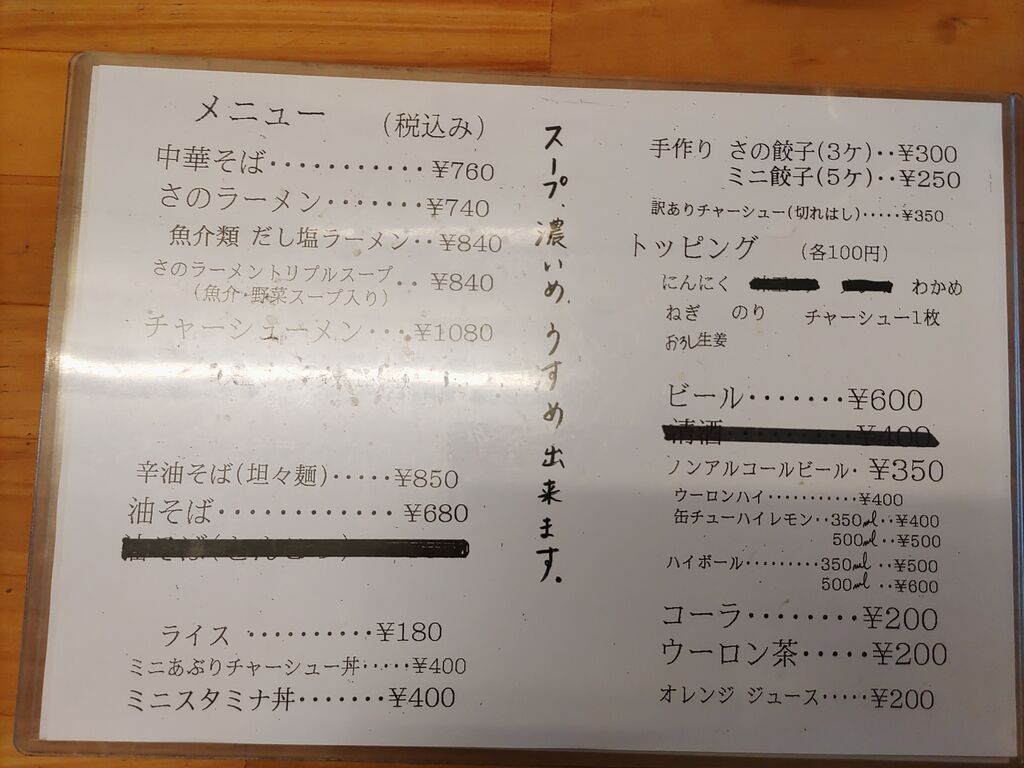 メニュー (税込み)
中華そば・・・・・・・・・・・・¥760
さのラーメン・・・・・・・¥740
魚介類 だし塩ラーメン・・¥840
さのラーメントリプルスープ・・¥840
(魚介・野菜スープ入り)
チャーシューメン・・・¥1080
辛油そば(坦々麺)・・・・・¥850
油そば・・・・・・・・・・・・¥680
ライス ・・・・・・・・・・¥180
ミニあぶりチャーシュー丼・・・・・¥400
ミニスタミナ丼・・・・・・・¥400
スープ、濃いめ、うすめ出来ます。
手作り さの餃子(3ケ)・・¥300
ミニ餃子(5ケ)・・¥250
訳ありチャーシュー(切れはし)・・・・・¥350
トッピング (各100円)
にんにく わかめ
ねぎ のり チャーシュー1枚
おろし生姜
ビール・・・・・・・¥600
清酒・・・・・・・・¥400
ノンアルコールビール・¥350
ウーロンハイ・・・・・・・・・・・¥400
缶チューハイレモン・・350ml・・¥400
500ml・・¥500
ハイボール・・・・・・・・・350ml・・¥500
500ml・・¥600
コーラ・・・・・・・・¥200
ウーロン茶・・・・・¥200
オレンジ ジュース・・・・・¥200